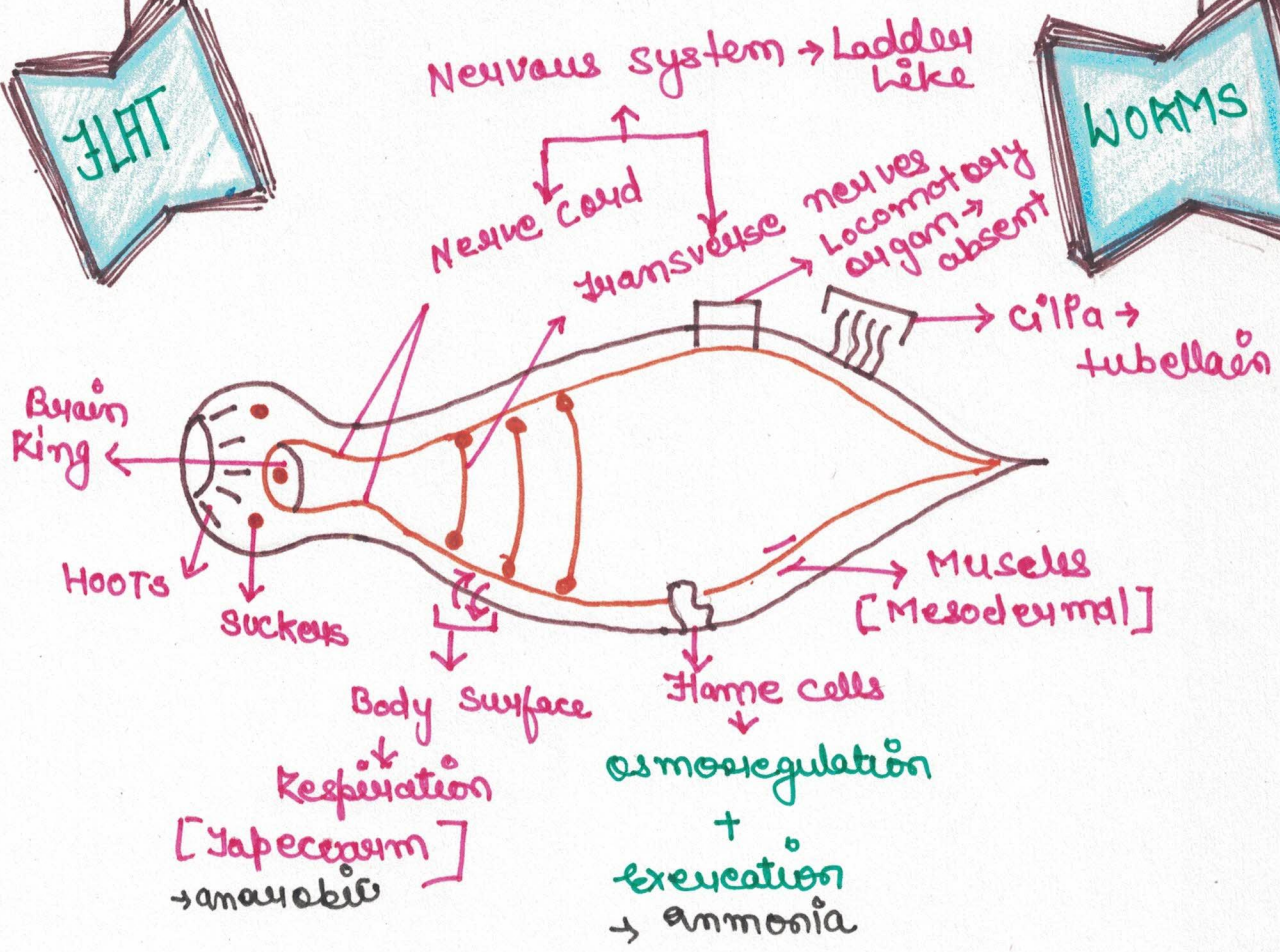 FLAT
WORMS
Nervous system → Ladder
Like
Nerve cord
Transverse nerves
Locomotory
organ →
absent
Cilia →
tubellain
Brain
Ring
HOOTS
Suckers
Muscles
[Mesodermal]
Body Surface
Respiration
[Tapeworm]
→ anarobic
Flame cells
osmoregulation
+
exercation
→ anmonia